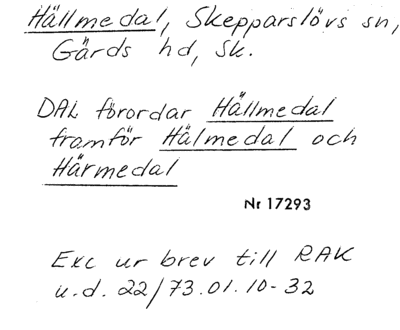 Hällmedal, Skepparslövs sn,
Gärds hd, Sk.
DAL förordar Hällmedal
framför Hälmedal och
Härmedal
Nr 17293
Exc ur brev till RAK
u.d. 22/73.01.10-32